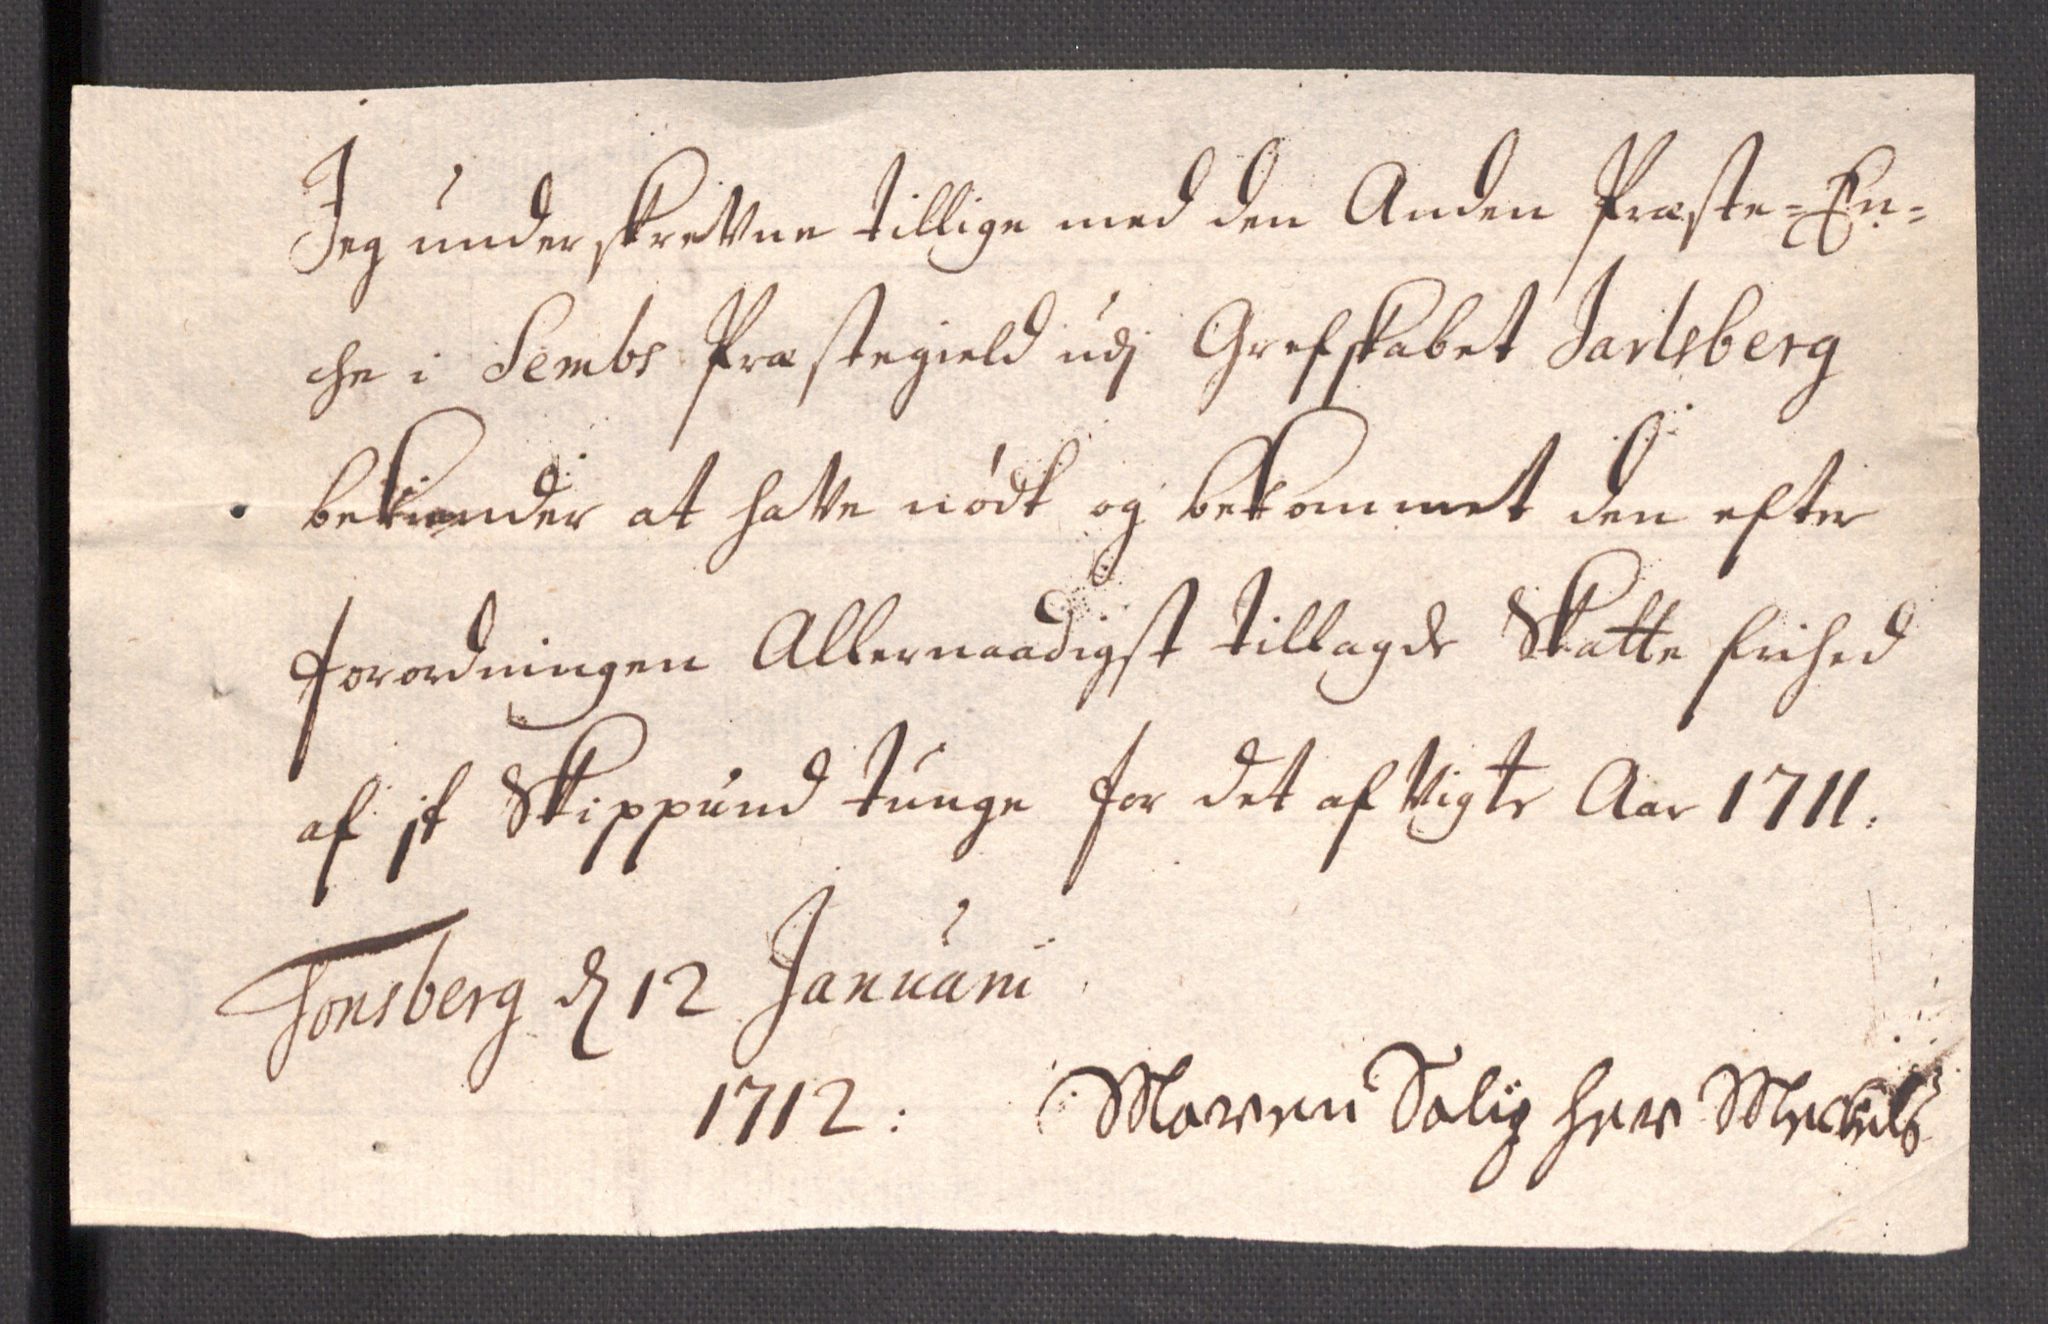 Jeg underskrevne tillige med den Anden Præste-En-
che i Sembs Præstegield udj Grefskabet Jarlsberg
bekiender at hafve nødt og bekommet den efter
forordningen Allernaadigst tillagde Skatte frihed
af jt Skippund tunge for det afvigte Aar 1711.
Tonsberg d 12 Januarii
1712: Maren Salig her